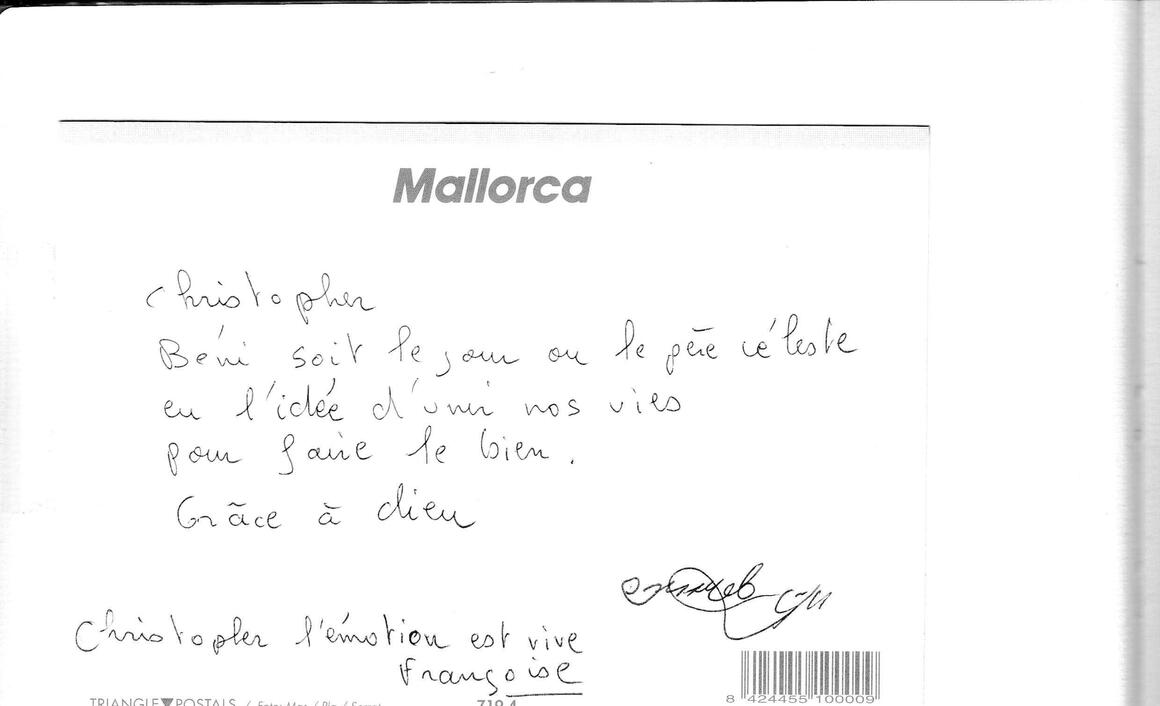 Mallorca
Christopher
Béni soit le jour ou le père céleste
eu l'idée d'unir nos vies
pour faire le bien.
Grâce à dieu
Christopher l'émotion est vive
Françoise
TRIANGLE▼POSTALS
719.4
8 424455 100009